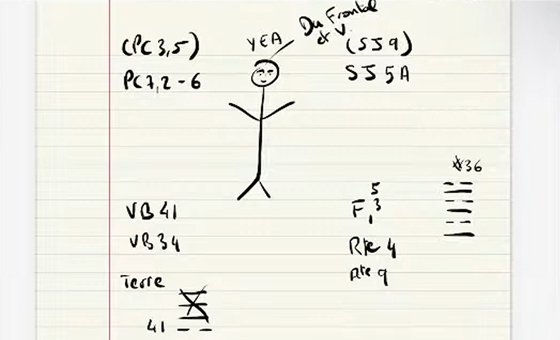 Du Frontal
& V.
YEA
(PC 3,5)
(SJ 9)
PC 7,2 - 6
SJ 5A
#36
5
VB 41
F, 3
1
VB 34
Rte 4
Rte 9
Terre
41